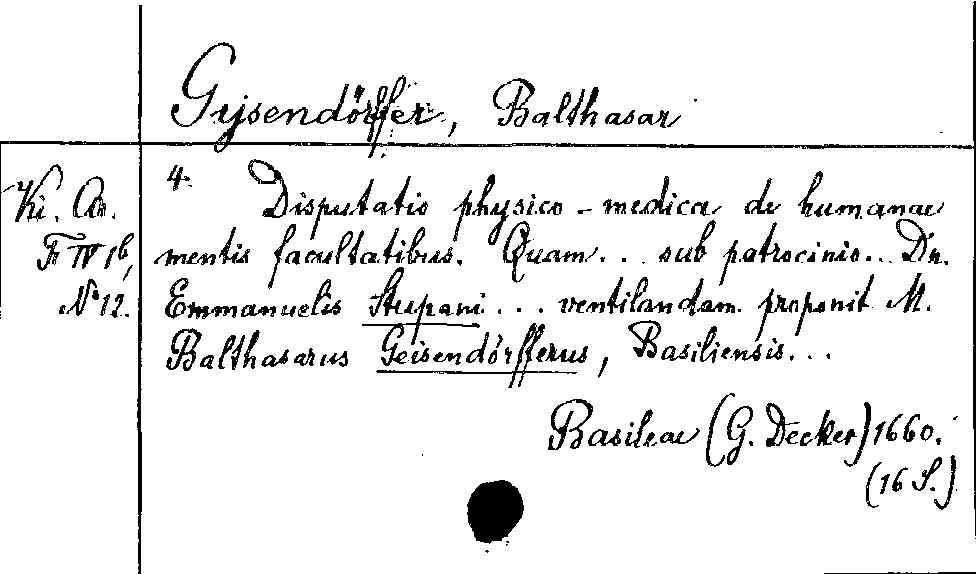 Gysendörffer, Balthasar
Ki. Ar.
F IV 1b,
No 12.
4. Disputatio physico-medica de humanae
mentis facultatibus. Quam... sub patrocinio... Dn.
Emmanuelis Stupani... ventilandam proponit M.
Balthasarus Geisendörfferus, Basiliensis...
Basileae (G. Decker) 1660.
(16 S.)